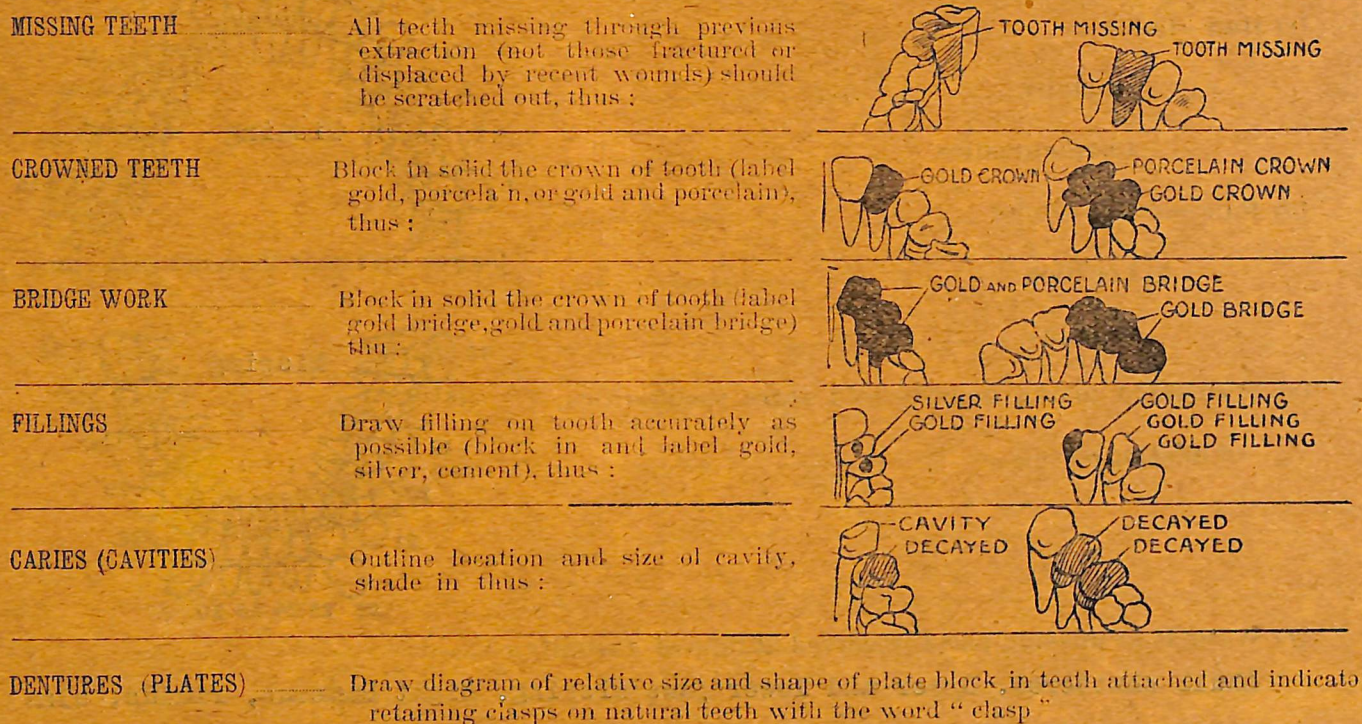 MISSING TEETH
All teeth missing through previous
extraction (not those fractured or
displaced by recent wounds) should
be scratched out, thus :
TOOTH MISSING
TOOTH MISSING
CROWNED TEETH
Block in solid the crown of tooth (label
gold, porcela'n, or gold and porcelain),
thus :
GOLD CROWN
PORCELAIN CROWN
GOLD CROWN
BRIDGE WORK
Block in solid the crown of tooth (label
gold bridge, gold and porcelain bridge)
thu :
GOLD AND PORCELAIN BRIDGE
GOLD BRIDGE
FILLINGS
Draw filling on tooth accurately as
possible (block in and label gold,
silver, cement), thus :
SILVER FILLING
GOLD FILLING
GOLD FILLING
GOLD FILLING
GOLD FILLING
CARIES (CAVITIES)
Outline location and size of cavity,
shade in thus :
CAVITY
DECAYED
DECAYED
DECAYED
DENTURES (PLATES)
Draw diagram of relative size and shape of plate block in teeth attached and indicate
retaining clasps on natural teeth with the word “ clasp ”